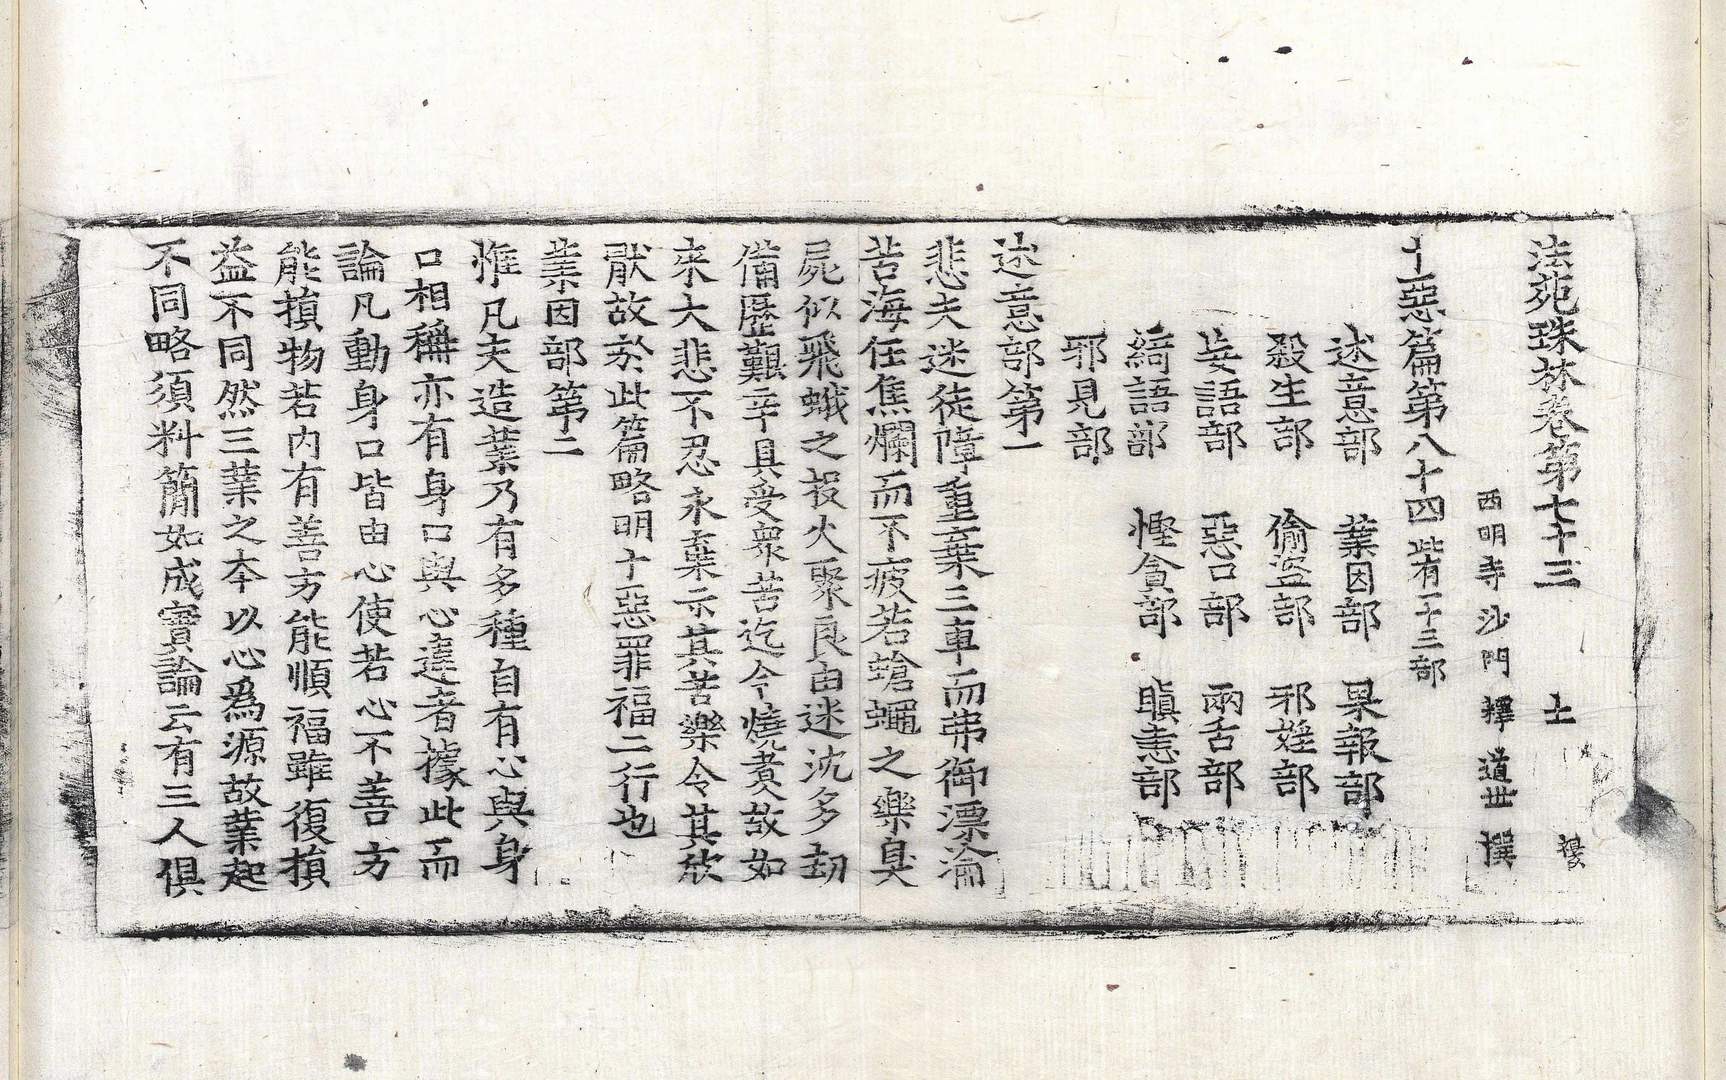 法苑珠林卷第七十三　士
西明寺沙門釋道世撰
十惡篇第八十四此有一十三部
述意部　業因部　果報部
殺生部　偷盜部　邪婬部
妄語部　惡口部　兩舌部
綺語部　慳貪部　瞋恚部
邪見部
述意部第一
悲夫迷徒障重棄三車而弗御漂淪
苦海任焦爛而不疲若蒼蠅之樂臭
屍似飛蛾之投火聚良由迷沈多劫
備歷艱辛具受衆苦迄今燒煑故如
來大悲不忍永棄示其苦樂令其欣
猒故於此篇略明十惡罪福二行也
業因部第二
惟凡夫造業乃有多種自有心與身
口相稱亦有身口與心違者據此而
論凡動身口皆由心使若心不善方
能損物若内有善方能順福雖復損
益不同然三業之本以心爲源故業起
不同略須料簡如成實論云有三人俱